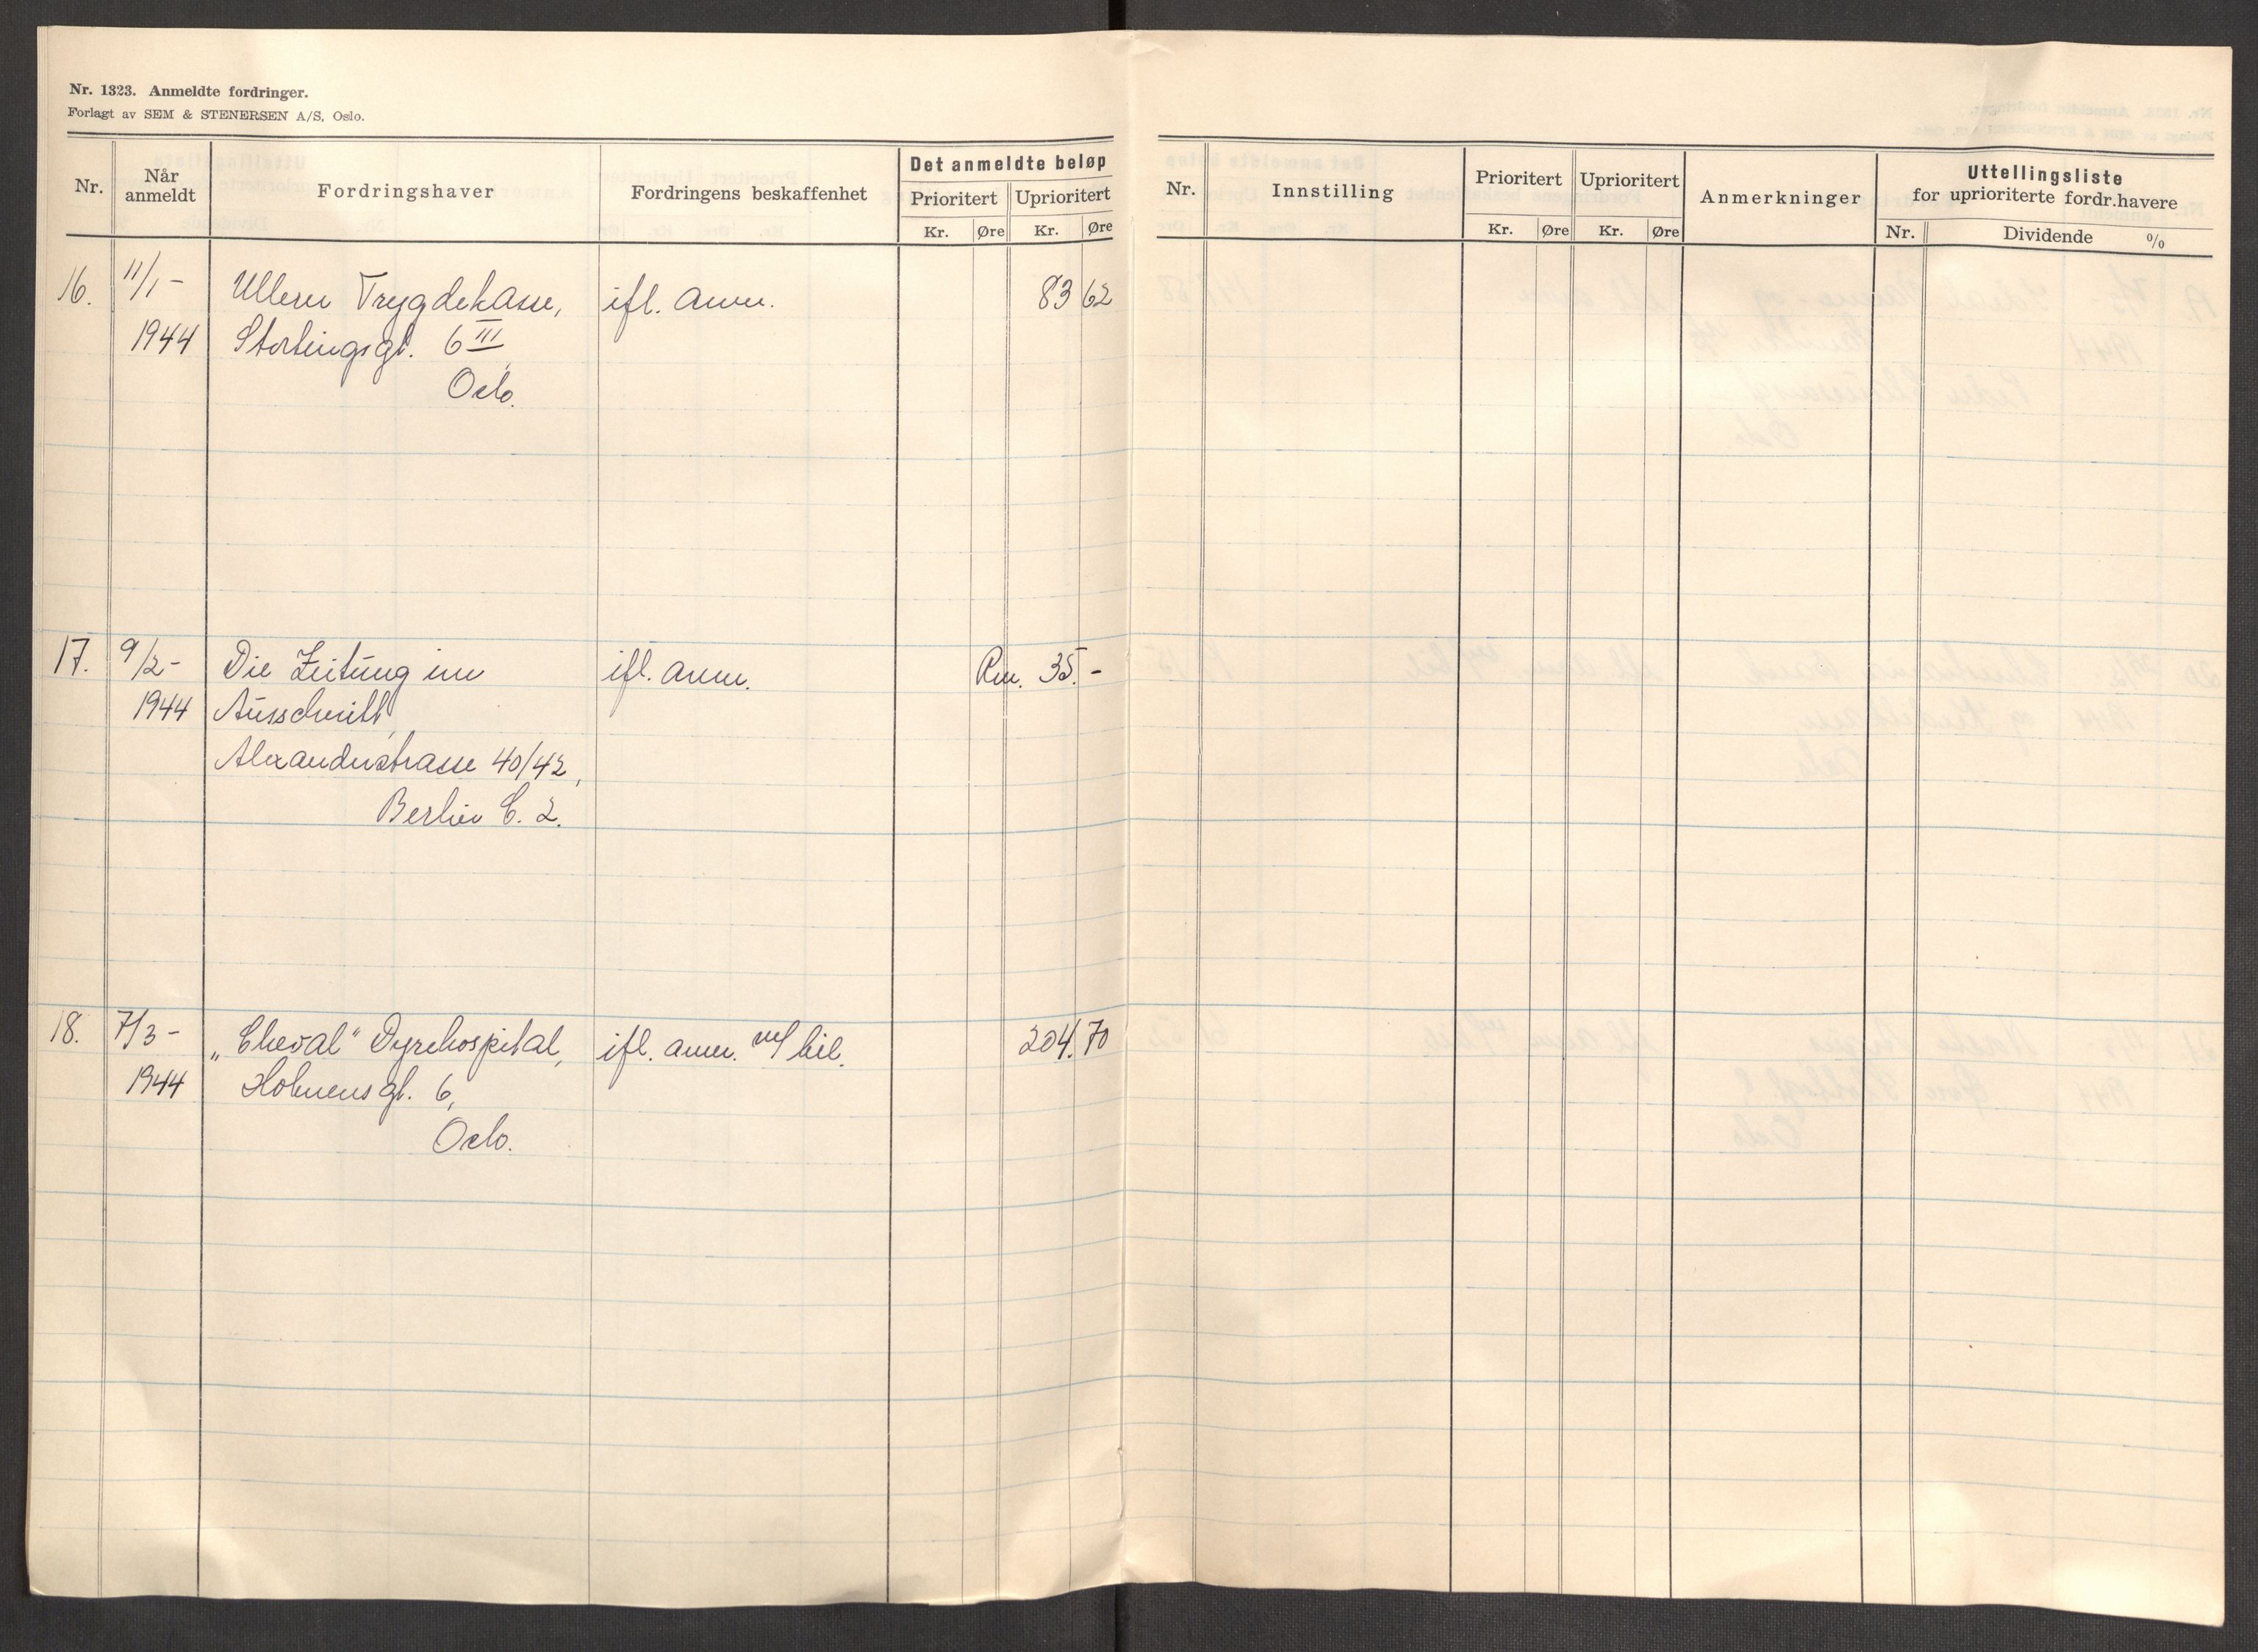 Nr. 1323. Anmeldte fordringer.
Forlagt av SEM & STENERSEN A/S, Oslo.
Nr. Når anmeldt Fordringshaver Fordringens beskaffenhet Det anmeldte beløp
Prioritert Uprioritert
Kr. Øre Kr. Øre
16. 11/1- Ullern Trygdekasse, ifl. anm. 83 62
1944 Stortingsgt. 6 III
Oslo.
17. 9/2- Die Zeitung im ifl. anm. Rm. 35.-
1944 Ausschnitt,
Alexanderstrasse 40/42,
Berlin C. 2.
18. 7/3- „Cheval" Dyrehospital, ifl. anm. m/ bil. 204.70
1944 Holmensgt. 6,
Oslo.
Nr. Innstilling Prioritert Uprioritert Anmerkninger Uttellingsliste
for uprioriterte fordr.havere
Kr. Øre Kr. Øre Nr. Dividende %